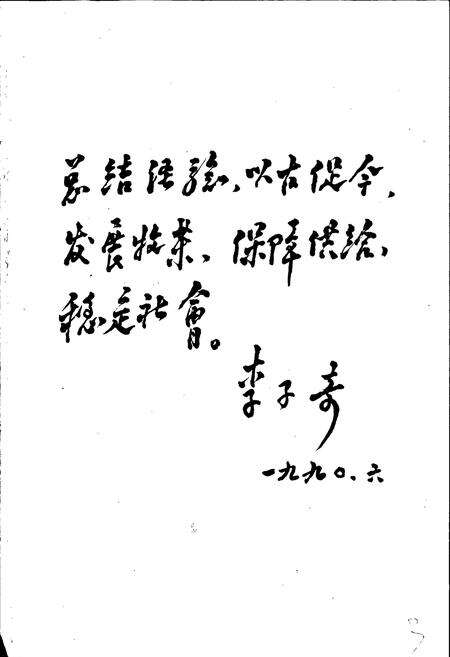 总结经验，以古促今，
发展牧业，保障供给，
稳定社會。
李子奇
一九九〇.六